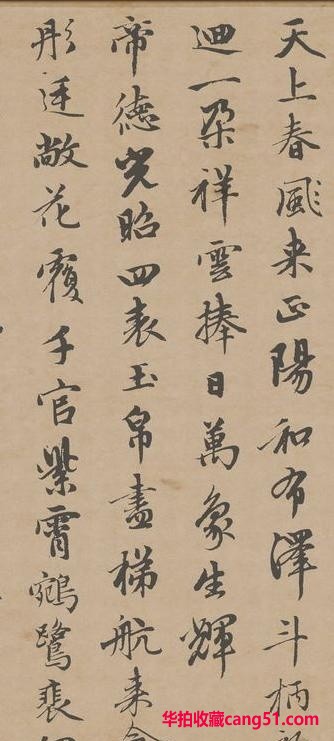 天上春風来正陽和布澤斗柄
迴一朶祥雲捧日萬象生輝
帝德光昭四表玉帛盡梯航来
彤廷敞花覆千官紫霄鵷鷺裴
华拍收藏cang51.com